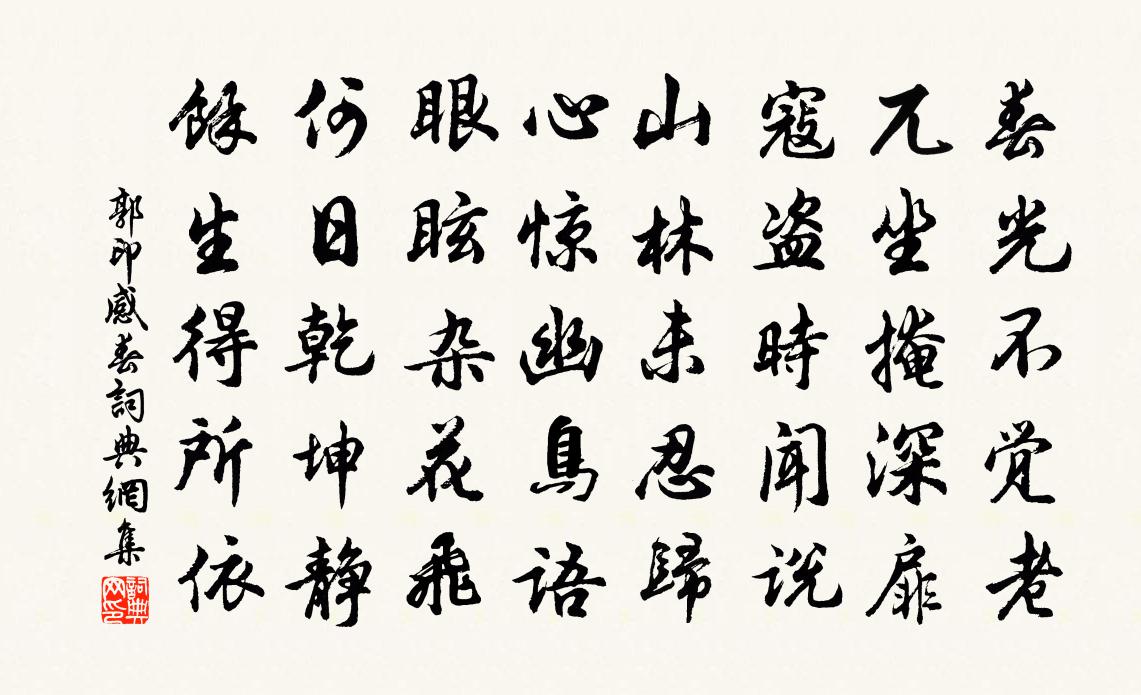 春光不觉老
兀坐掩深扉
寇盗時闻说
山林未忍歸
心惊幽鳥语
眼眩杂花飛
何日乾坤静
餘生得所依
郭印感春詞典網集
詞典网印